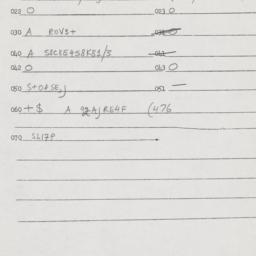 022 O 023 O
030 A ROVS+ 031 O
040 A SBCKE+S8KS1/5 041
042 O 043 O
050 S+OASEJ 051 —
060 +$ A 92AJRE4F (476
070 SL17P